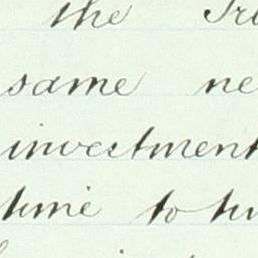 the Tru
same ne
investment
time to ti